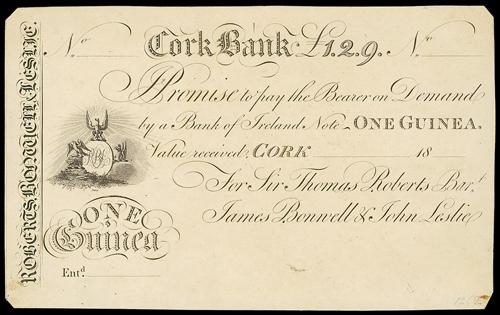 ROBERTS, BONWELL & LESLIE
No Cork Bank £1.2.9. No
I Promise to pay the Bearer on Demand
by a Bank of Ireland Note ONE GUINEA.
Value received, CORK 18
For Sir Thomas Roberts Bart.
James Bonwell & John Leslie
ONE
Guinea
Entd.